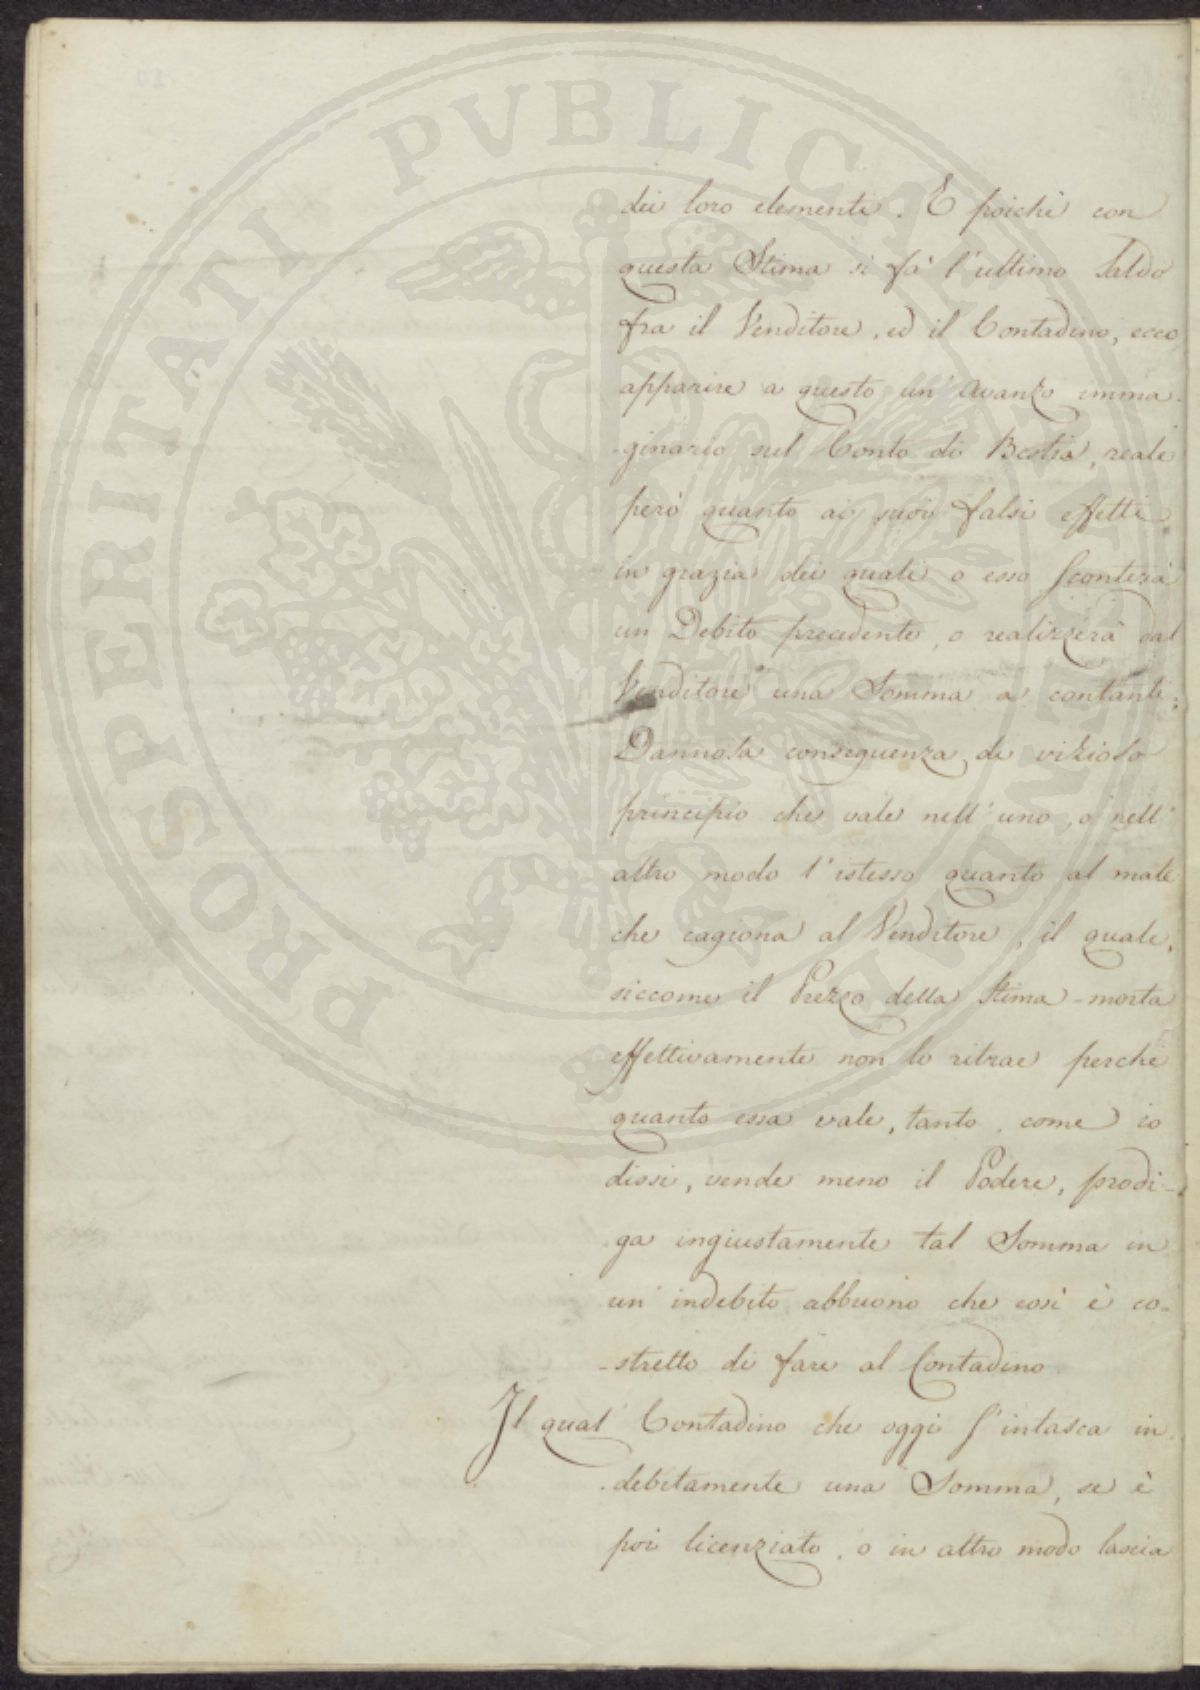 dei loro elementi. E poichè con
questa Stima si fà l'ultimo Saldo
fra il Venditore, ed il Contadino, ecco
apparire a questo un' avanzo imma-
-ginario sul Conto di Bestia, reale
però quanto ai suoi falsi effetti
in grazia dei quali o esso sconterà
un Debito precedente, o realizzerà dal
Venditore una Somma a contanti;
Dannosa conseguenza di vizioso
principio che vale nell' uno, o nell'
altro modo l'istesso quanto al male
che cagiona al Venditore, il quale,
siccome il Prezzo della Stima-morta
effettivamente non lo ritrae perchè
quanto essa vale, tanto, come io
dissi, vende meno il Podere, prodi-
-ga ingiustamente tal Somma in
un' indebito abbuono che così è co-
-stretto di fare al Contadino
Il qual' Contadino che oggi s'intasca in-
-debitamente una Somma, se è
poi licenziato, o in altro modo lascia
PROSPERITATI PVBLICAE AVGENDAE